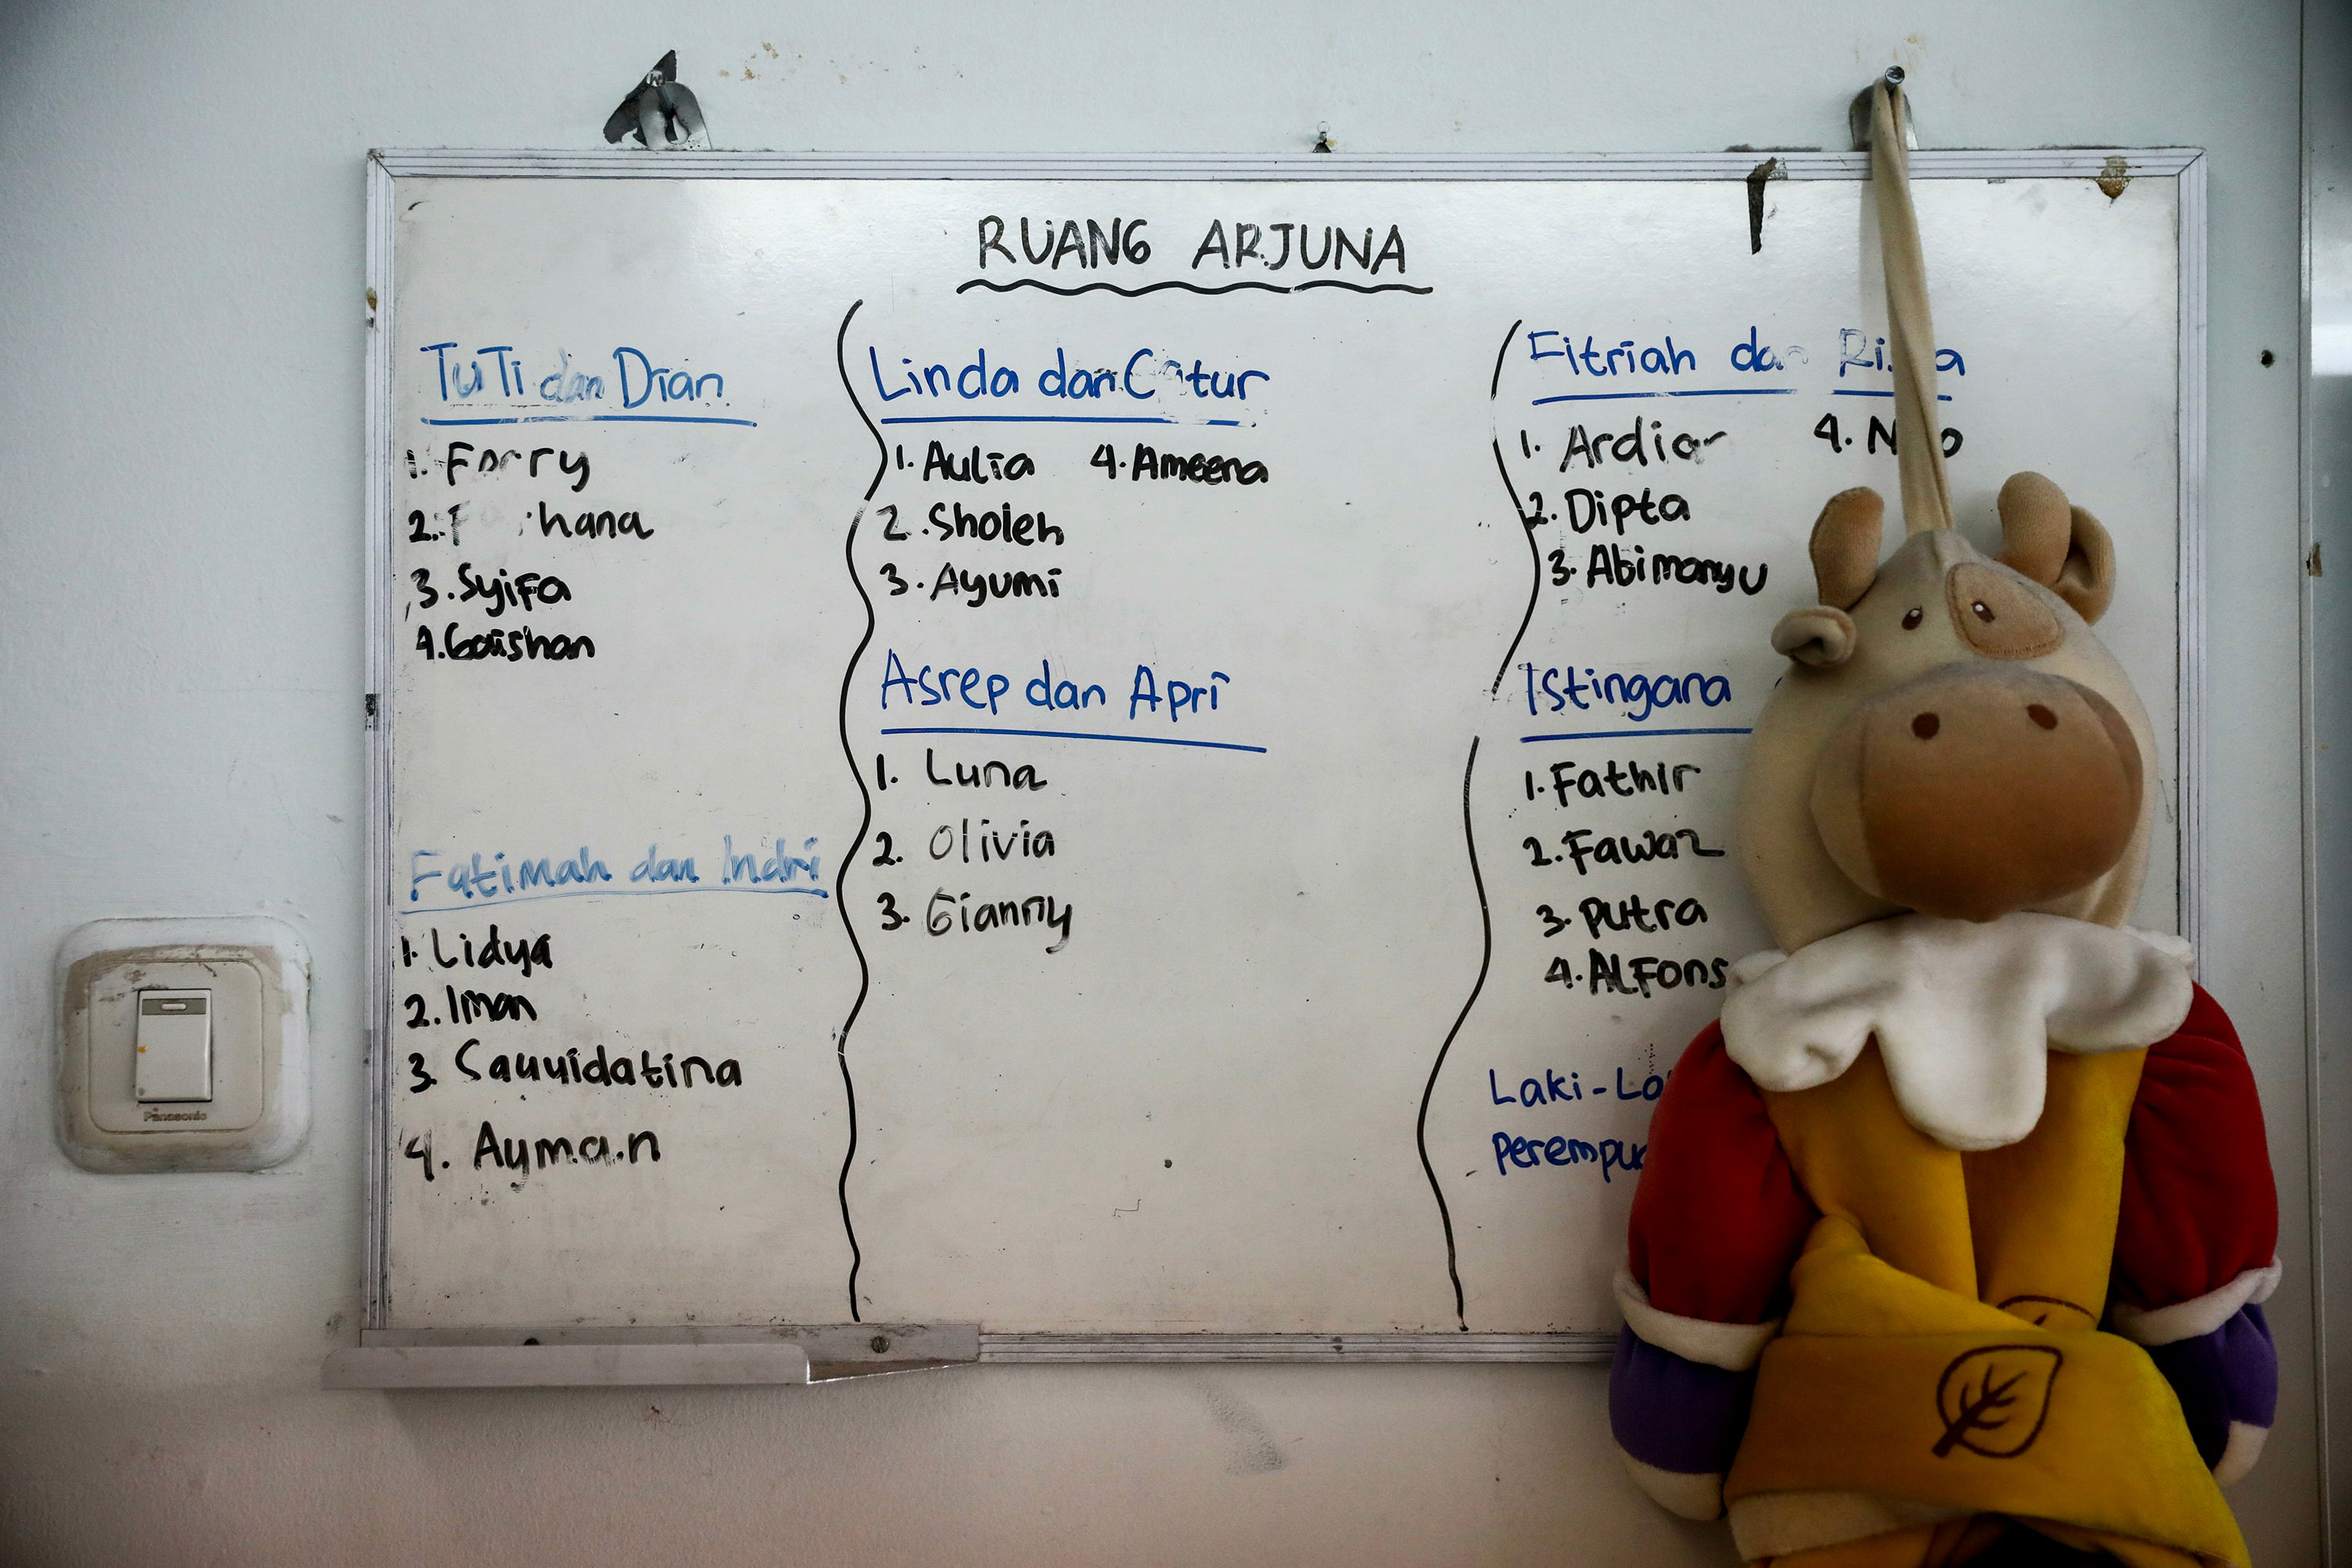 RUANG ARJUNA
TuTi dan Dian
1. Ferry
2. hana
3. Syifa
4. Gaishan
Fatimah dan Indri
1. Lidya
2. Iman
3. Sayyidatina
4. Ayman
Linda dan Catur
1. Aulia 4. Ameena
2. Sholeh
3. Ayumi
Asrep dan Apri
1. Luna
2. Olivia
3. Gianny
Fitriah dan
1. Ardian 4.
2. Dipta
3. Abimanyu
Istingana
1. Fathir
2. Fawaz
3. putra
4. ALFons
Laki-La
perempua
Panasonic